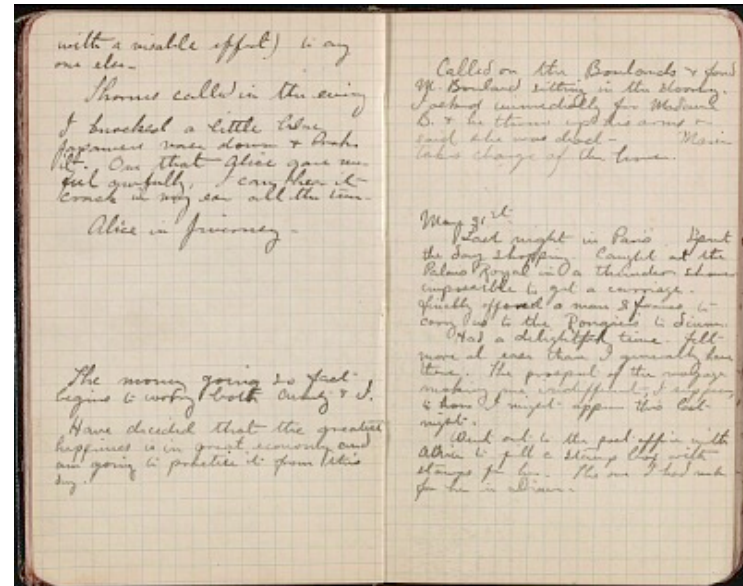 with a visable effort) to any
one else -
Thomas called in the evening
I knocked a little blue
Japanese vase down & broke
it. One that Alice gave me
feel awfully, I can hear it
crack in my ear all the time.
Alice in Giverney -
The money going so fast
begins to worry both & I.
Have decided that the greatest
happiness is in great economy and
am going to practice it from this
day.
Called on the Boulands & found
M. Bouland sitting in the
I asked immediately for Madame
B. & he threw up his arms &
said she was dead -
takes charge of the house.
May 31st
Last night in Paris. Spent
the day shopping. Caught at the
Palais Royal in a thunder shower
impossible to get a carriage.
finally offered a man 8 francs to
carry us to the to dinner.
Had a delightful time. felt
more at ease than I generally have
there. The prospect of the voyage
making me indifferent, I suppose,
to how I might appear this last
night.
Went out to the post office with
to fill a stamp box with
stamps for her. The one I had
for her in